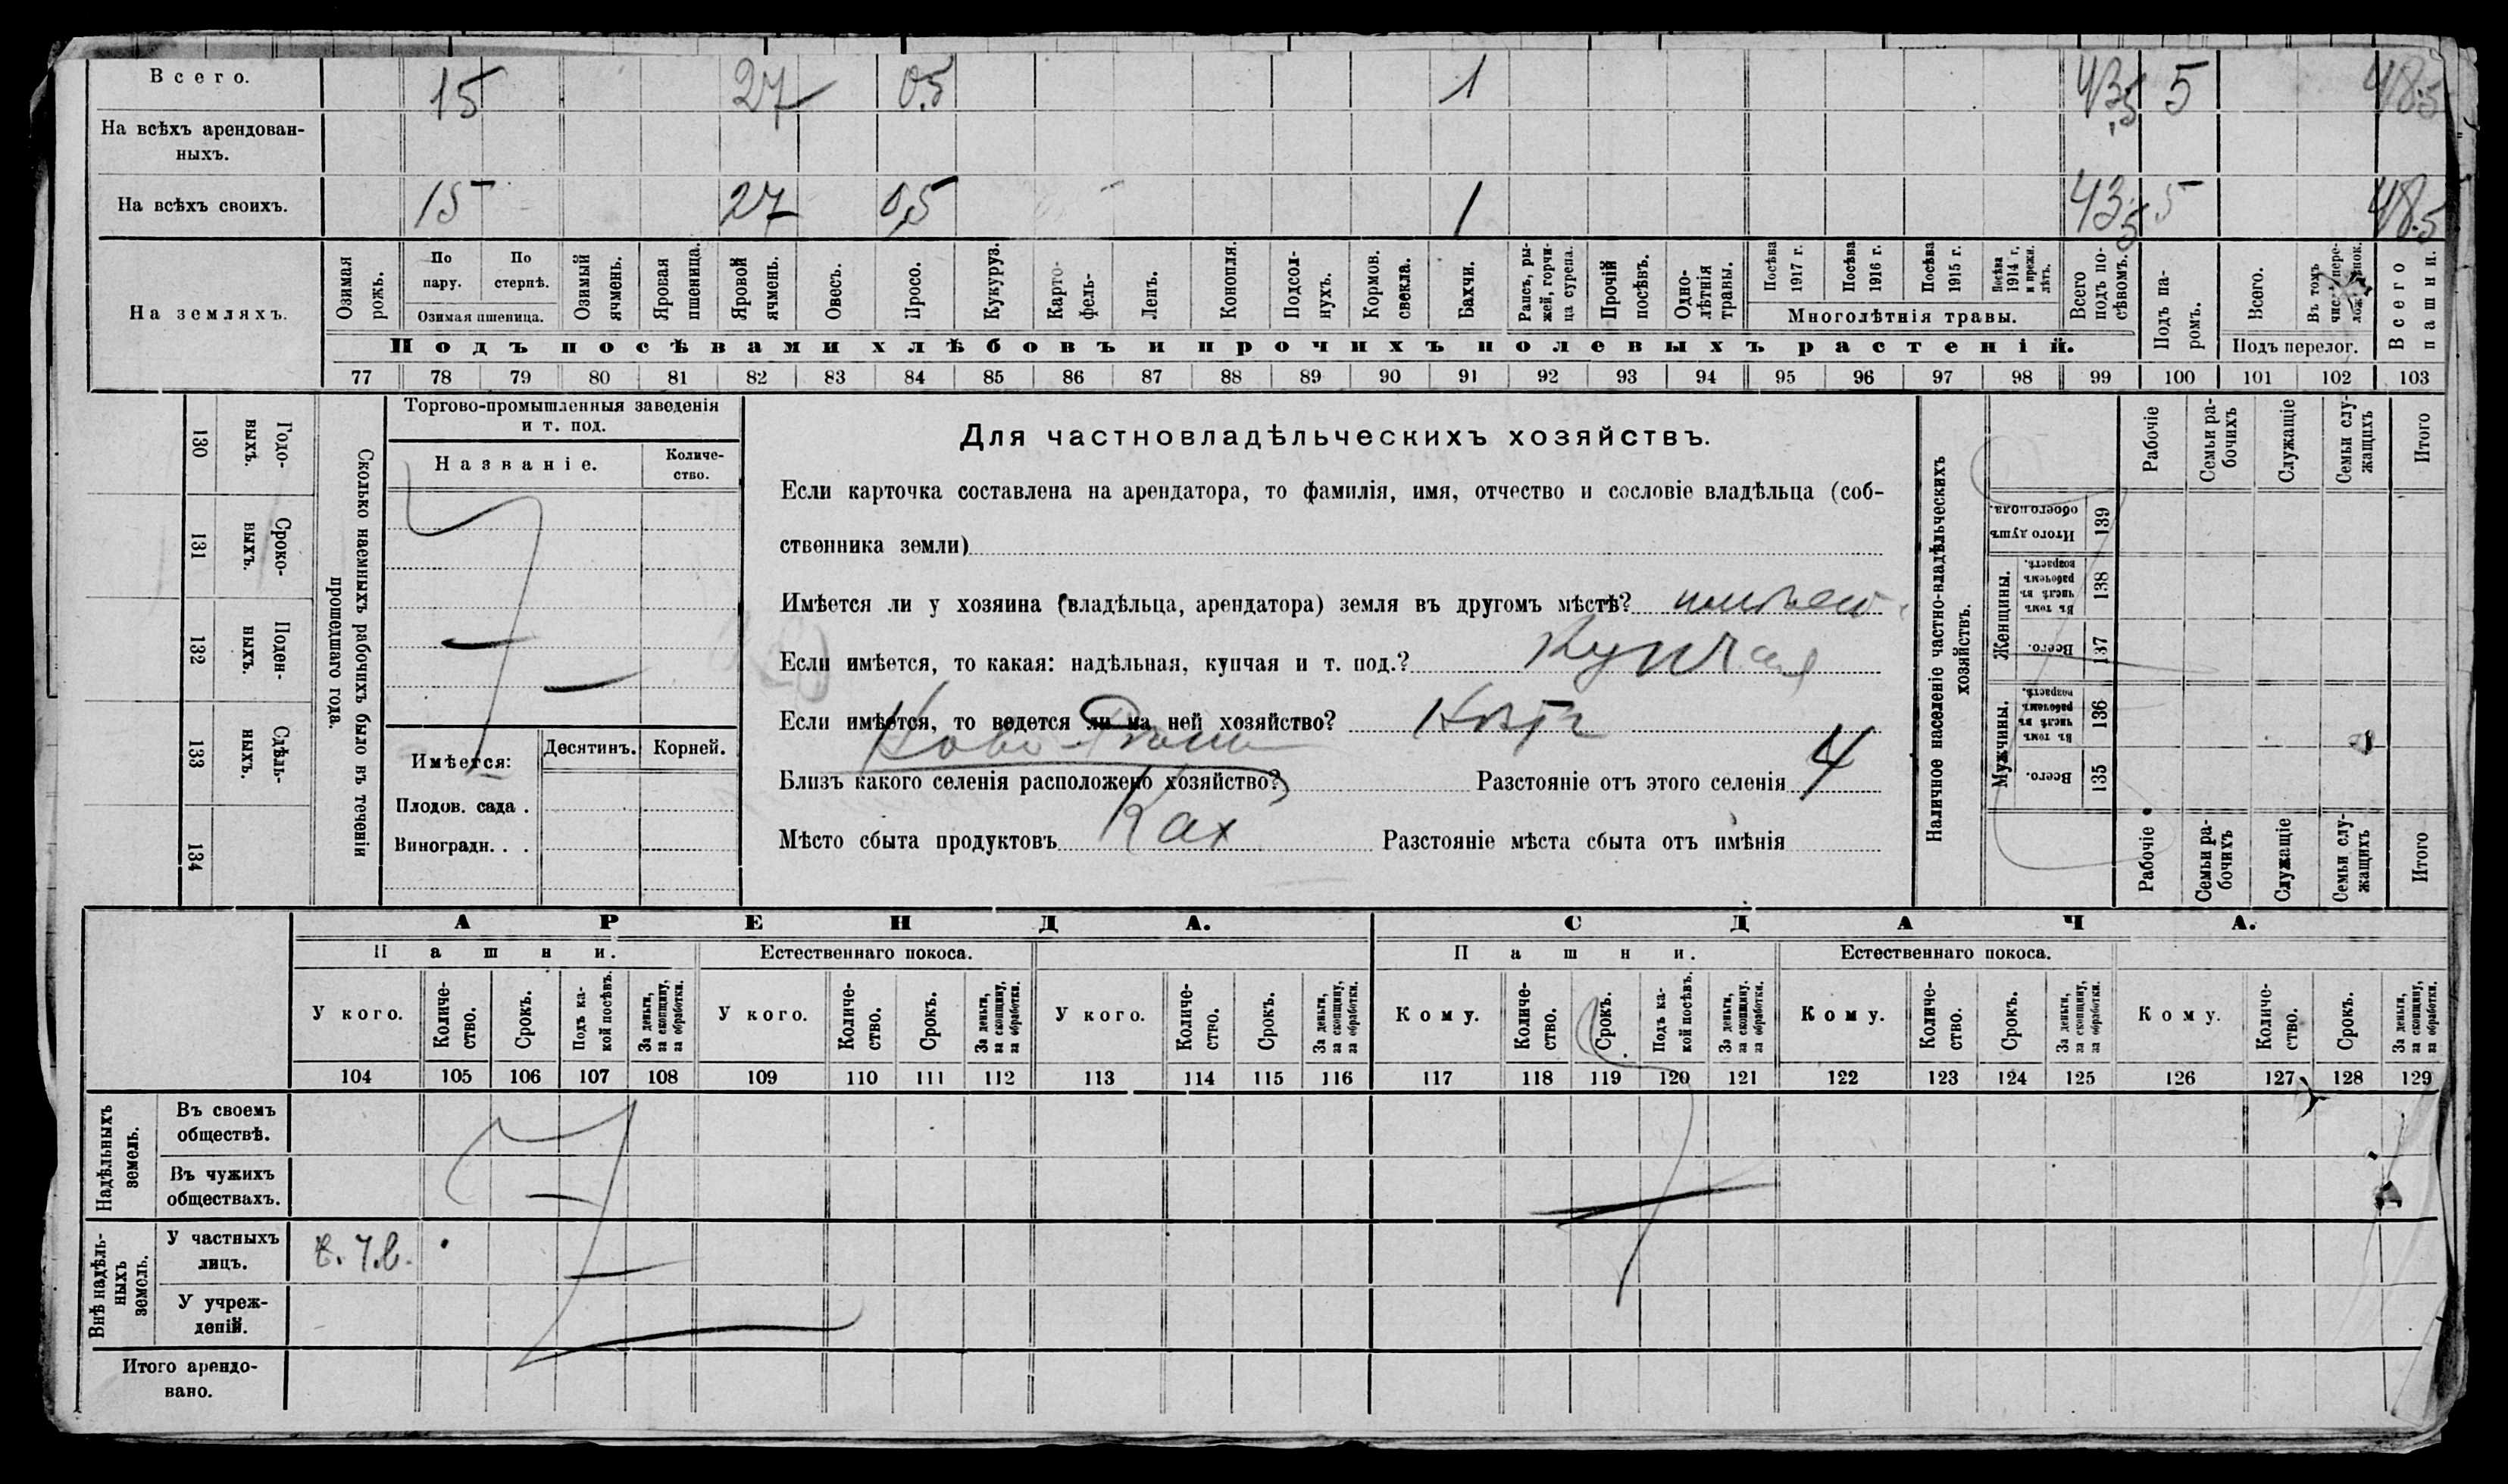 Всего. 15 27 0,5 1 43,5 5 48.5
На всѣхъ арендован-
ныхъ.
На всѣхъ своихъ. 15 27 0,5 1 43,5 5 48.5
На земляхъ.
Озимая рожь.
По пару.
По стернѣ.
Озимая пшеница.
Озимый ячмень.
Яровая пшеница.
Яровой ячмень.
Овесъ.
Просо.
Кукуруз.
Карто-
фель-
Ленъ.
Конопля.
Подсол-
нухъ.
Кормов. свекла.
Бахчи.
Рапсъ, ры-
жей, горчи-
ца сурепа.
Прочій посѣвъ.
Одно-
лѣтнія травы.
Посѣва 1917 г.
Посѣва 1916 г.
Посѣва 1915 г.
Посѣва 1914 г. и прежн. лѣтъ.
Многолѣтнія травы.
Всего подъ по-
сѣвомъ.
Подъ па-
ромъ.
Всего.
Въ томъ
Подъ перелог.
Всего пашни.
Подъ посѣвами хлѣбовъ и прочихъ полевыхъ растеній.
77 78 79 80 81 82 83 84 85 86 87 88 89 90 91 92 93 94 95 96 97 98 99 100 101 102 103
130 Годо-
выхъ.
131 Сроко-
выхъ.
132 Поден-
ныхъ.
133 Сдѣль-
ныхъ.
134
Сколько наемныхъ рабочихъ было въ теченіи
прошедшаго года.
Торгово-промышленныя заведенія
и т. под.
Названіе.
Количе-
ство.
Имѣется: Десятинъ. Корней.
Плодов. сада .
Виноградн. . .
Для частновладѣльческихъ хозяйствъ.
Если карточка составлена на арендатора, то фамилія, имя, отчество и сословіе владѣльца (соб-
ственника земли)
Имѣется ли у хозяина (владѣльца, арендатора) земля въ другомъ мѣстѣ?
Если имѣется, то какая: надѣльная, купчая и т. под.? Купчая
Если имѣется, то ведется ли на ней хозяйство?
Близъ какого селенія расположено хозяйство? Разстояніе отъ этого селенія 4
Мѣсто сбыта продуктовъ Ках Разстояніе мѣста сбыта отъ имѣнія
Наличное населеніе частно-владѣльческихъ
хозяйствъ.
Рабочіе
Семьи ра-
бочихъ
Служащіе
Семьи слу-
жащихъ
Итого
Итого душъ
обоего пола.
139
Женщины.
Въ томъ
числѣ въ
рабочемъ
возрастѣ.
138
Всего.
137
Мужчины.
Въ томъ
числѣ въ
рабочемъ
возрастѣ.
136
Всего.
135
Рабочіе
Семьи ра-
бочихъ
Служащіе
Семьи слу-
жащихъ
Итого
АРЕНДА. СДАЧА.
Пашни. Естественнаго покоса. Пашни. Естественнаго покоса.
У кого.
Количе-
ство.
Срокъ.
Подъ ка-
кой посѣвъ.
За деньги,
за скопщину,
за обработки.
У кого.
Количе-
ство.
Срокъ.
За деньги,
за скопщину,
за обработки.
У кого.
Количе-
ство.
Срокъ.
За деньги,
за скопщину,
за обработки.
Кому.
Количе-
ство.
Срокъ.
Подъ ка-
кой посѣвъ.
За деньги,
за скопщину.
за обработки.
Кому.
Количе-
ство.
Срокъ.
За деньги,
за скопщину,
за обработки.
Кому.
Количе-
ство.
Срокъ.
За деньги,
за скопщину,
за обработки.
104 105 106 107 108 109 110 111 112 113 114 115 116 117 118 119 120 121 122 123 124 125 126 127 128 129
Надѣльныхъ
земель.
Въ своемъ
обществѣ.
Въ чужихъ
обществахъ.
Внѣ надѣль-
ныхъ
земель.
У частныхъ
лицъ.
У учреж-
деній.
Итого арендо-
вано.